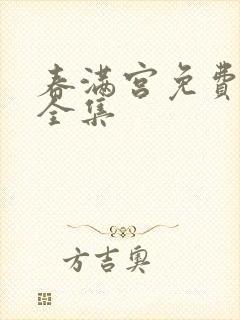 春满宫免費
全集
方吉奥